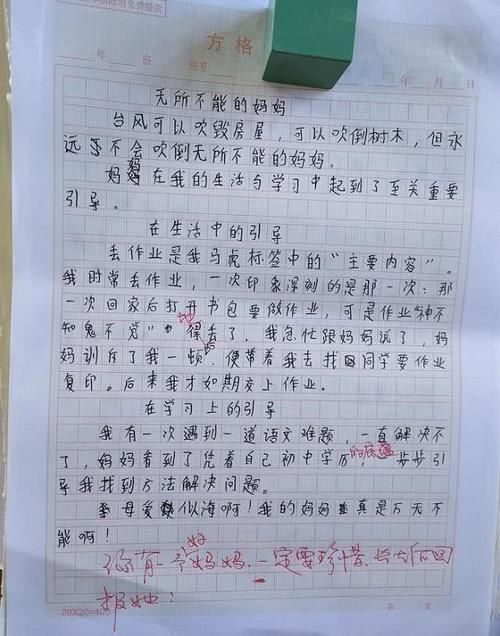 政府免费提供
方格
年 班 编号 年 月 日
无所不能的妈妈
台风可以吹毁房屋，可以吹倒树木，但永
远不会吹倒无所不能的妈妈。
妈妈在我的生活与学习中起到了至关重要
引导。
在生活中的引导
丢作业是我马虎标签中的“主要内容”。
我时常丢作业，一次印象深刻的是那一次：那
一次回家后打开书包要做作业，可是作业“神不
知鬼不觉”地得丢了，我急忙跟妈妈说了，妈
妈训斥了我一顿后，便带着我去找同学要作业
复印。后来我才如期交上作业。
在学习上的引导
我有一次遇到一道语文难题，一直解决不
了，妈妈看到了凭着自己初中学历的底蕴，一步步引
导我找到方法解决问题。
母爱似海啊！我的妈妈真是万无不
能啊！
你有一个好妈妈，一定要珍惜，长大后回
报她！
20X20=400 第 页